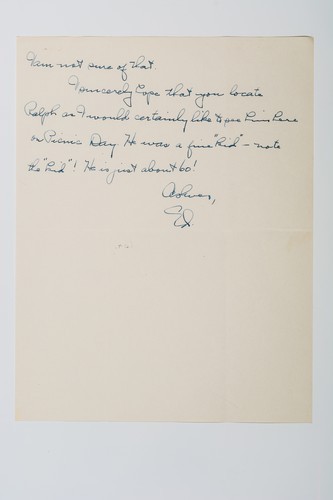 I am not sure of that.
I sincerely hope that you locate
Ralph as I would certainly like to see him here
on Picnic Day. He was a fine "kid" - note
the "kid"! He is just about 60!
As ever,
Ed.